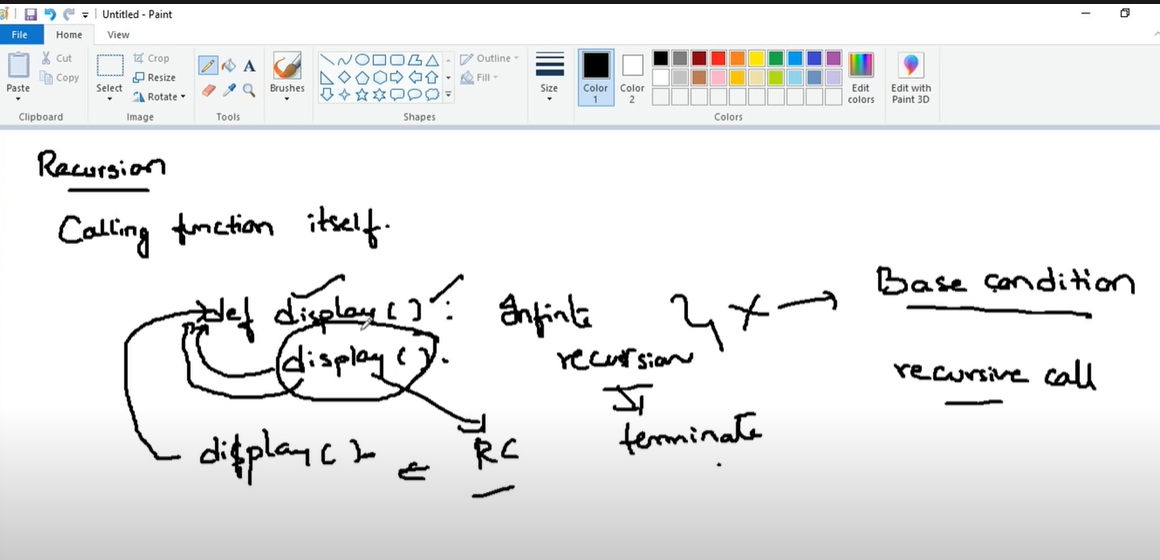 Untitled - Paint
File Home View
Paste Cut Copy Clipboard
Select Crop Resize Rotate Image
Tools
Brushes
Outline Fill Shapes
Size
Color 1 Color 2 Edit colors Colors
Edit with Paint 3D
Recursion
Calling function itself.
def display():
display().
display()
RC
Infinte
recursion
terminate
Base condition
recursive call